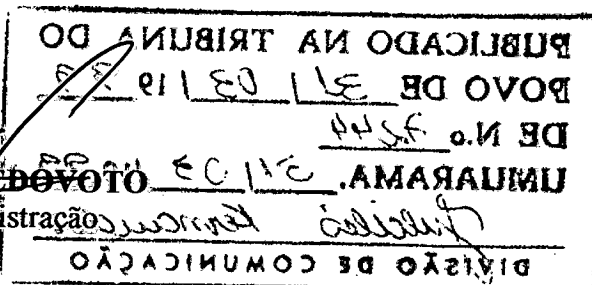 PUBLICADO NA TRIBUNA DO
POVO DE 31 / 03 / 19
DE N.o 7.244
UMUARAMA, 31 / 03
DOVOTO
istração
DIVISÃO DE COMUNICAÇÃO